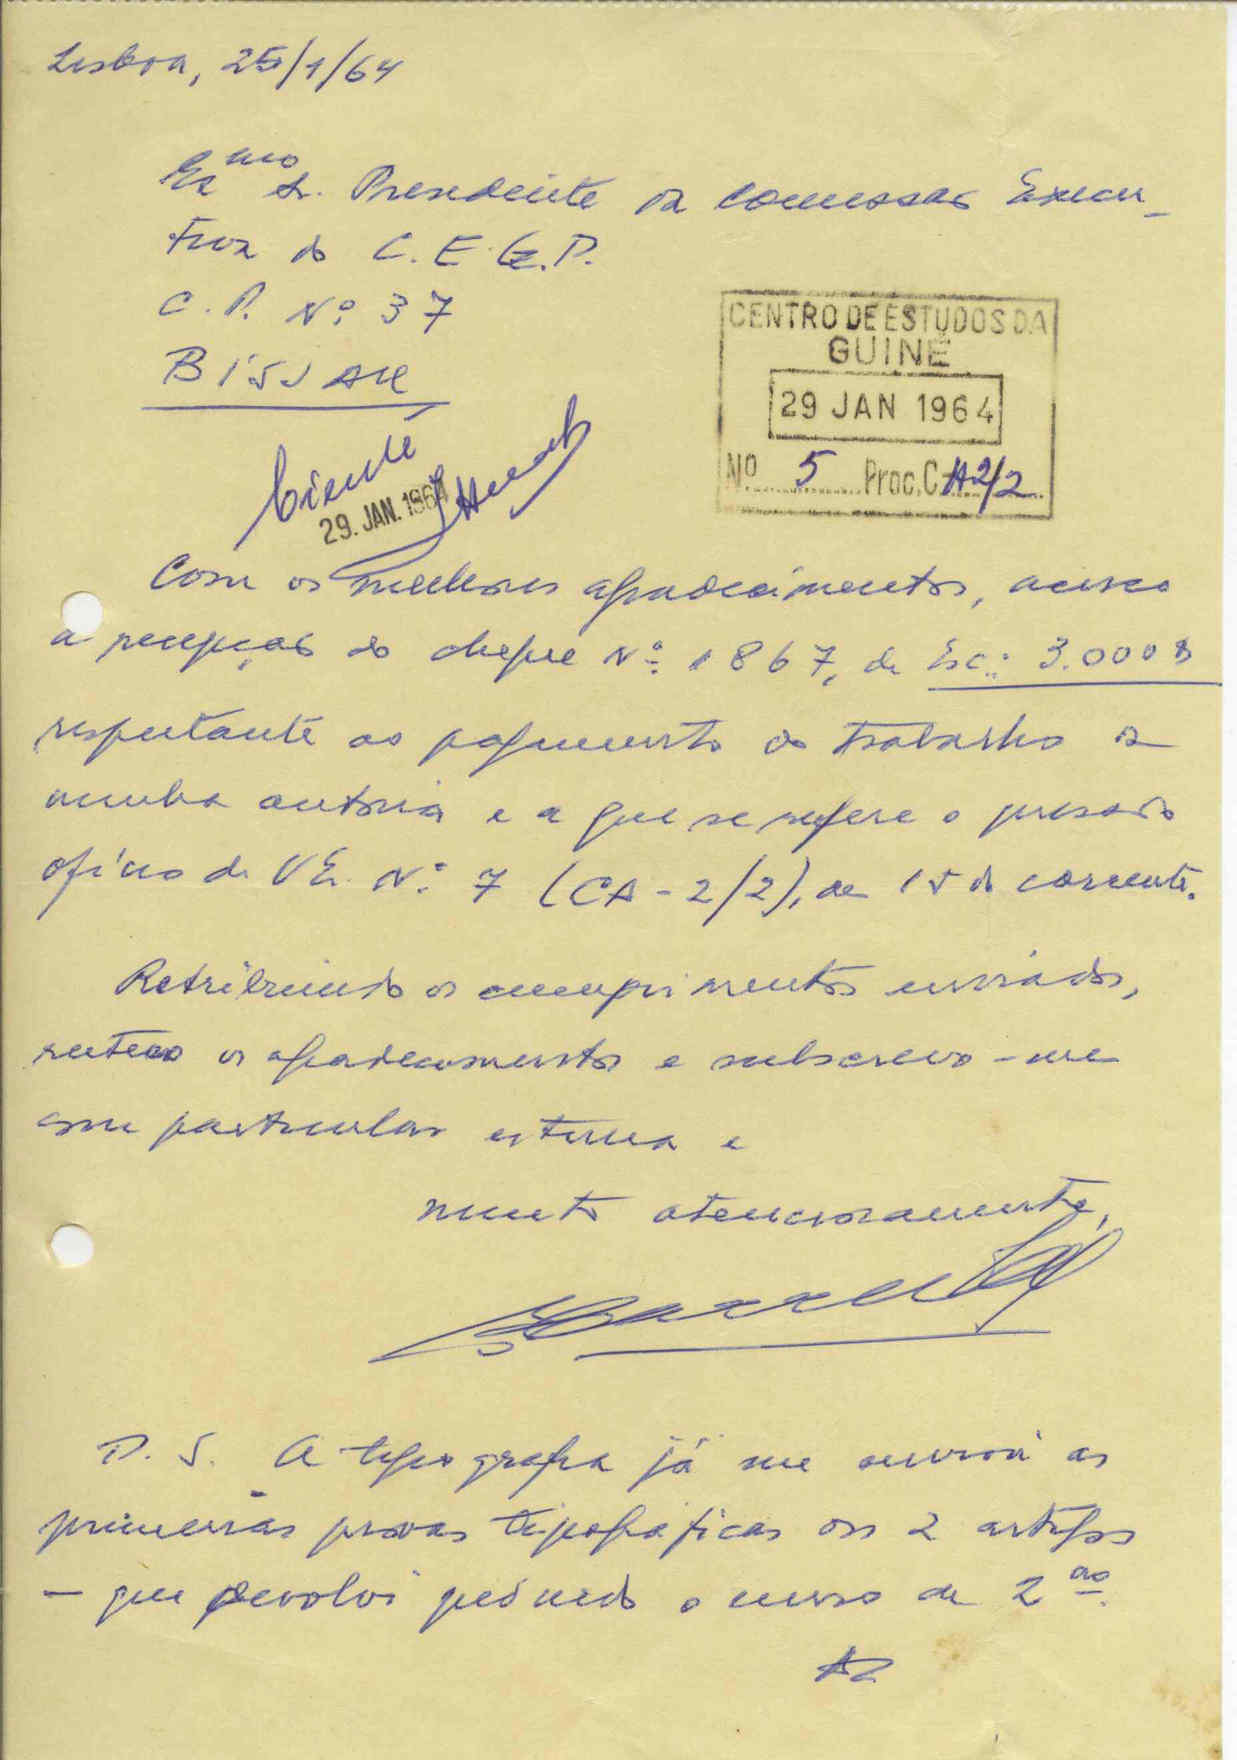 Lisboa, 25/1/64
Exmo Sr. Presidente da Comissão Execu-
tiva do C. E. G. P.
C. P. Nº 37
BISSAU
CENTRO DE ESTUDOS DA
GUINÉ
29 JAN 1964
Nº 5 Proc. CA2/2
Ciente
29. JAN. 1964
Com os melhores agradecimentos, acuso
a recepção do cheque Nº 1867, de Esc.: 3.000$
respeitante ao pagamento do trabalho da
minha autoria e a que se refere o prezado
ofício de V. E. Nº 7 (CA-2/2), de 15 do corrente.
Retribuindo os cumprimentos enviados,
reitero os agradecimentos e subscrevo-me
com particular estima e
muito atenciosamente,
P. S. A tipografia já me enviou as
primeiras provas tipográficas dos 2 artigos
— que devolvi pedindo o envio de 2as.